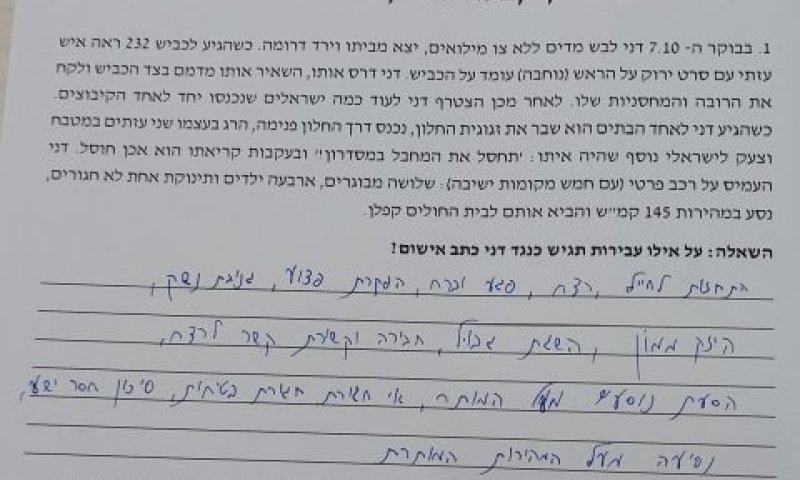 1. בבוקר ה- 7.10 דני לבש מדים ללא צו מילואים, יצא מביתו וירד דרומה. כשהגיע לכביש 232 ראה איש
עזתי עם סרט ירוק על הראש (נוחבה) עומד על הכביש. דני דרס אותו, השאיר אותו מדמם בצד הכביש ולקח
את הרובה והמחסניות שלו. לאחר מכן הצטרף דני לעוד כמה ישראלים שנכנסו יחד לאחד הקיבוצים.
כשהגיע דני לאחד הבתים הוא שבר את זגוגית החלון, נכנס דרך החלון פנימה, הרג בעצמו שני עזתים במטבח
וצעק לישראלי נוסף שהיה איתו: 'תחסל את המחבל במסדרון!' ובעקבות קריאתו הוא אכן חוסל. דני
העמיס על רכב פרטי (עם חמש מקומות ישיבה): שלושה מבוגרים, ארבעה ילדים ותינוקת אחת לא חגורים,
נסע במהירות 145 קמ״ש והביא אותם לבית החולים קפלן.
השאלה: על אילו עבירות תגיש כנגד דני כתב אישום?
התחזות לחייל, רצח, פגע וברח, הפקרת פצוע, גניבת נשק,
היזק ממון, השגת גבול, חבירה וקשירת קשר לרצח,
הסעת נוסעים מעל המותר, אי חגירת חגורת בטיחות, סיכון חסר ישע,
נסיעה מעל המהירות המותרת